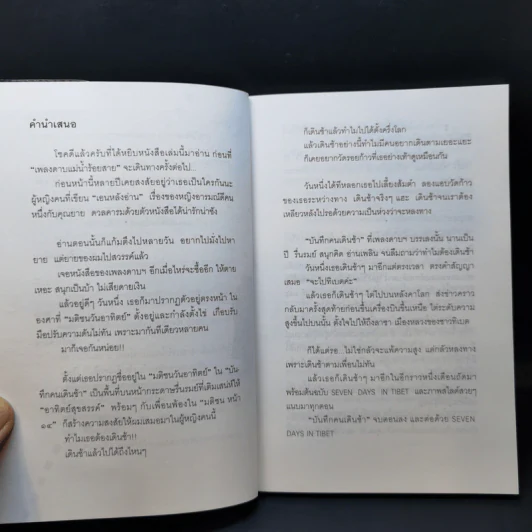 คำนำเสนอ
โชคดีแล้วครับที่ได้หยิบหนังสือเล่มนี้มาอ่าน ก่อนที่
“เพลงดาบแม่น้ำร้อยสาย” จะเดินทางครั้งต่อไป...
ก่อนหน้านี้หลายปีเคยสงสัยอยู่ว่าเธอเป็นใครกันนะ
ผู้หญิงคนที่เขียน “เอนหลังอ่าน” เรื่องของหญิงอารมณ์ดีคน
หนึ่งกับคุณยาย ดวลคารมด้วยตัวหนังสือได้น่ารักน่าชัง
อ่านตอนนั้นก็แก้มตึงไปหลายวัน อยากไปมั่งไปหา
ยาย แต่ยายของผมไปสวรรค์แล้ว
เจอหนังสือของเพลงดาบฯ อีกเมื่อไหร่จะซื้ออีก ให้ตาย
เหอะ สนุกเป็นบ้า ไม่เสียดายเงิน
แล้วอยู่ดีๆ วันหนึ่ง เธอก็มาปรากฏตัวอยู่ตรงหน้า ใน
องคาที่ “มติชนวันอาทิตย์” ตั้งอยู่และกำลังตั้งไข่ เกือบรับ
มือปรับความดันไม่ทัน เพราะมากันทีเดียวหลายคน
มาก็เจอกันหน่อย!!
ตั้งแต่เธอปรากฏชื่ออยู่ใน “มติชนวันอาทิตย์” ใน “บัน
ทึกคนเดินช้า” เป็นพื้นที่บนหน้ากระดาษรื่นรมย์ที่เติมเสน่ห์ให้
“อาทิตย์สุขสรรค์” พร้อมๆ กับเพื่อนพ้องใน “มติชน หน้า
๑๔” ก็สร้างความสงสัยให้ผมเสมอมาในผู้หญิงคนนี้
ทำไมเธอต้องเดินช้า!!
เดินช้าแล้วไปได้ถึงไหนๆ
ก็เดินช้าแล้วทำไมไปได้ตั้งครึ่งโลก
แล้วเดินช้าอย่างนี้ทำไมมีคนอยากเดินตามเยอะแยะ
ก็เคยอยากวัดรอยก้าวที่เธอย่างเท้าดูเหมือนกัน
วันหนึ่งได้ทีหลอกเธอไปเลี้ยงส้มตำ ลองแอบวัดก้าว
ของเธอระหว่างทาง เดินช้าจริงๆ แฮะ เดินช้าจนเราต้อง
เหลียวหลังไปรอด้วยความเป็นห่วงว่าจะหลงทาง
“บันทึกคนเดินช้า” ที่เพลงดาบฯ บรรเลงนั้น นานเป็น
ปี รื่นรมย์ สนุกคิด อ่านเพลิน จนลืมถามว่าทำไมต้องเดินช้า
วันหนึ่งเธอเดินช้าๆ มาอีกแต่ตรงเวลา ตรงคำสัญญา
เสมอ “จะไปทิเบตค่ะ”
แล้วเธอก็เดินช้าๆ ไต่ไปบนหลังคาโลก ส่งข่าวคราว
กลับมาครั้งสุดท้ายก่อนขึ้นเครื่องบินขึ้นเหนือ ไต่ระดับความ
สูงขึ้นไปบนนั้น ตั้งใจไปให้ถึงลาซา เมืองหลวงของชาวทิเบต
ก็ได้แต่รอ...ไม่ใช่กลัวจะแพ้ความสูง แต่กลัวหลงทาง
เพราะเดินช้าตามเพื่อนไม่ทัน
แล้วเธอก็เดินช้าๆ มาอีกในอีกราวหนึ่งเดือนถัดมา
พร้อมต้นฉบับ SEVEN DAYS IN TIBET และภาพสไลด์สวยๆ
แนบมาทุกตอน
“บันทึกคนเดินช้า” จบตอนลง และต่อด้วย SEVEN
DAYS IN TIBET